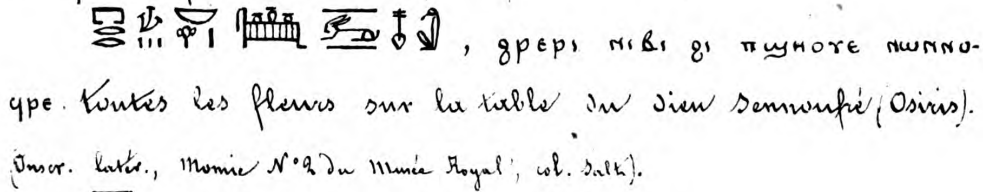 , ϩⲣⲉⲣⲓ ⲛⲓⲃⲓ ϩⲓ ⲡϣⲏⲟⲩⲉ ⲛⲱⲛⲛⲟ-
ϥⲣⲉ. toutes les fleurs sur la table du dieu Sennoufré (Osiris).
(Inscr. latér., Momie N° 2 du Musée Royal; col. Salt).